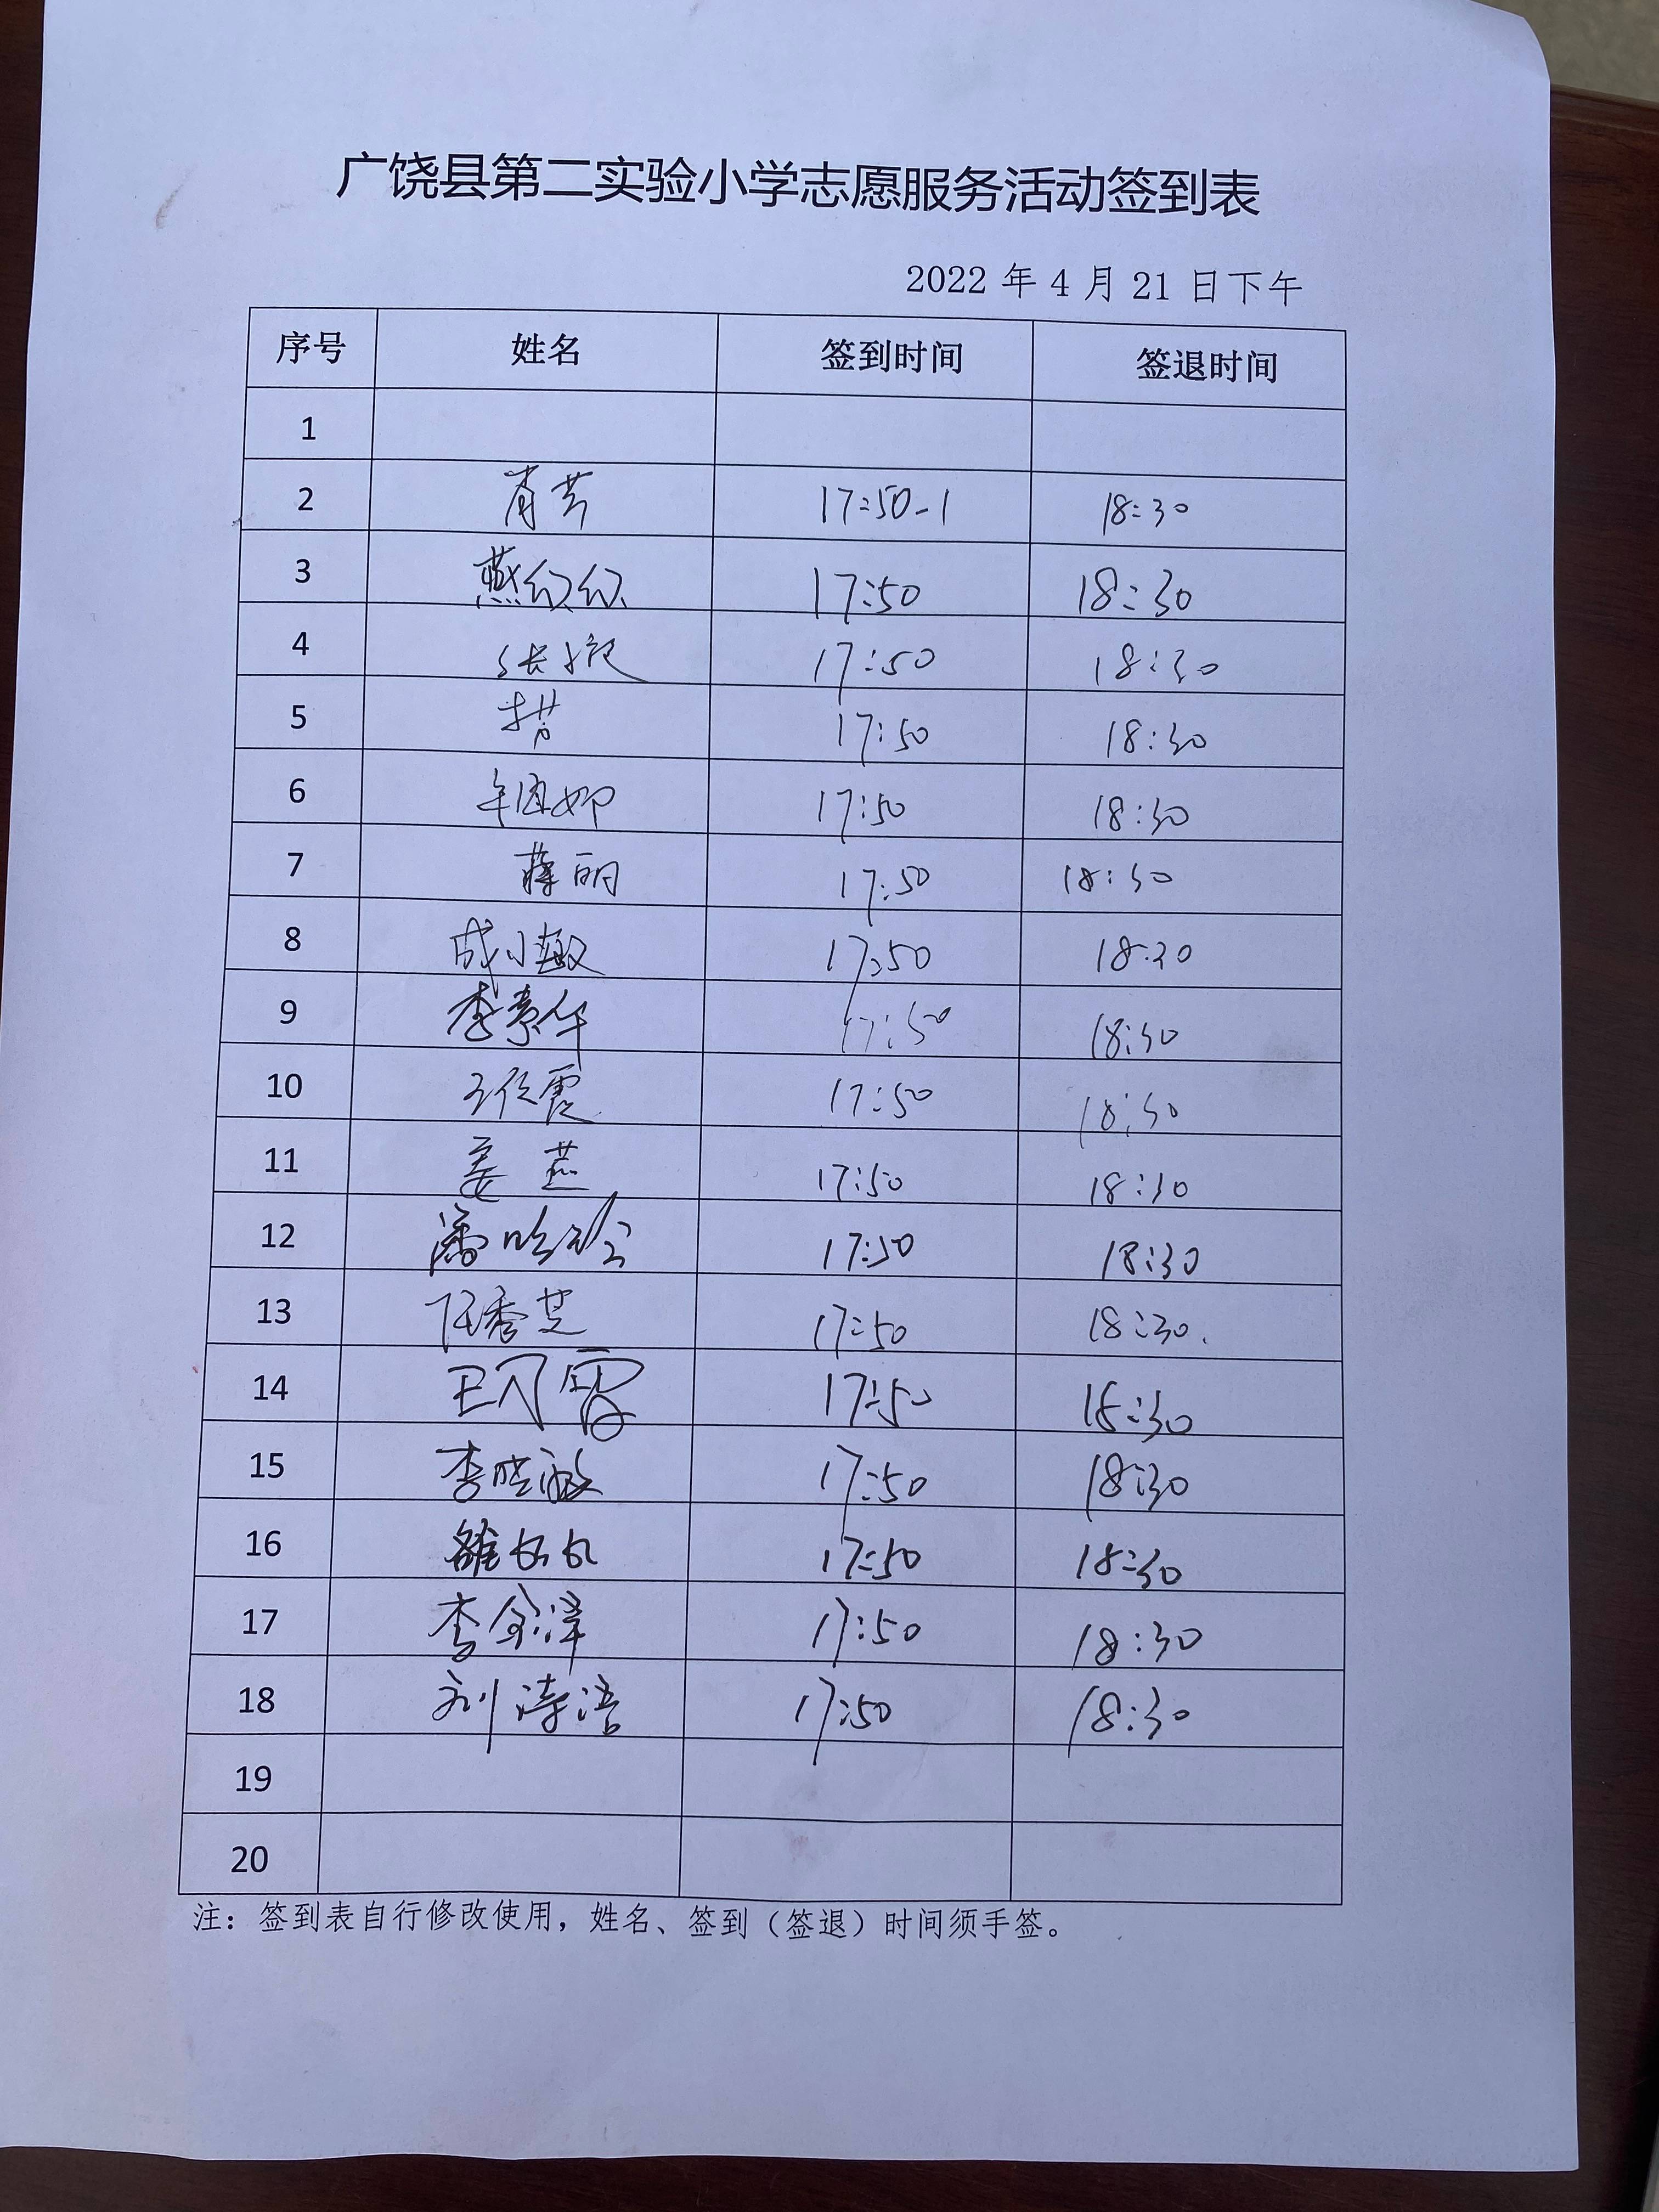 广饶县第二实验小学志愿服务活动签到表
2022 年 4 月 21 日下午
序号 姓名 签到时间 签退时间
1
2 17:50-1 18:30
3 燕红红 17:50 18:30
4 张 17:50 18:30
5 17:50 18:30
6 17:50 18:30
7 蒋丽 17:50 18:30
8 成小敏 17:50 18:30
9 李景华 17:50 18:30
10 王 霞 17:50 18:30
11 姜燕 17:50 18:30
12 潘 17:50 18:30
13 任秀芝 17:50 18:30.
14 17:50 18:30
15 李晓敏 17:50 18:30
16 17:50 18:30
17 李金泽 17:50 18:30
18 刘涛浩 17:50 18:30
19
20
注：签到表自行修改使用，姓名、签到（签退）时间须手签。